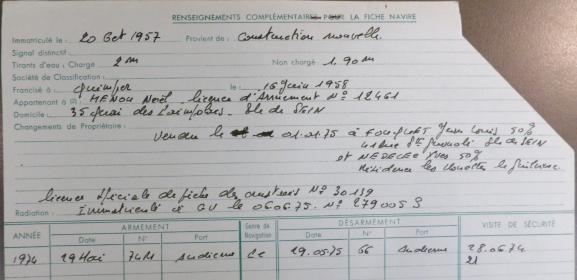 RENSEIGNEMENTS COMPLÉMENTAIRES POUR LA FICHE NAVIRE
Immatriculé le : 20 Oct 1957 Provient de : Construction nouvelle
Signal distinctif :
Tirants d'eau : Chargé 2m Non chargé 1,90m
Société de Classification :
Francisé à Quimper le : 16 juin 1958
Appartenant à (2) : MENOU Noël - licence d'Armement N° 12461
Domicile : 35 quai des Paimpolais - Ile de SEIN
Changements de Propriétaire :
Vendu le 01.01.75 à FOUQUET Jean Louis 50%
rue St Guénolé Ile de SEIN
et Yves 50%
Résidence les
licence spéciale de pêche des crustacés N° 30139
Radiation : Immatriculé à GV le 060675. N° 279005 G
ANNÉE ARMEMENT Genre de Navigation DÉSARMEMENT VISITE DE SÉCURITÉ
Date N° Port Date N° Port
1974 29 Mai 74M Audierne Cc 29.05.75 66 Audierne 28.06.74
21